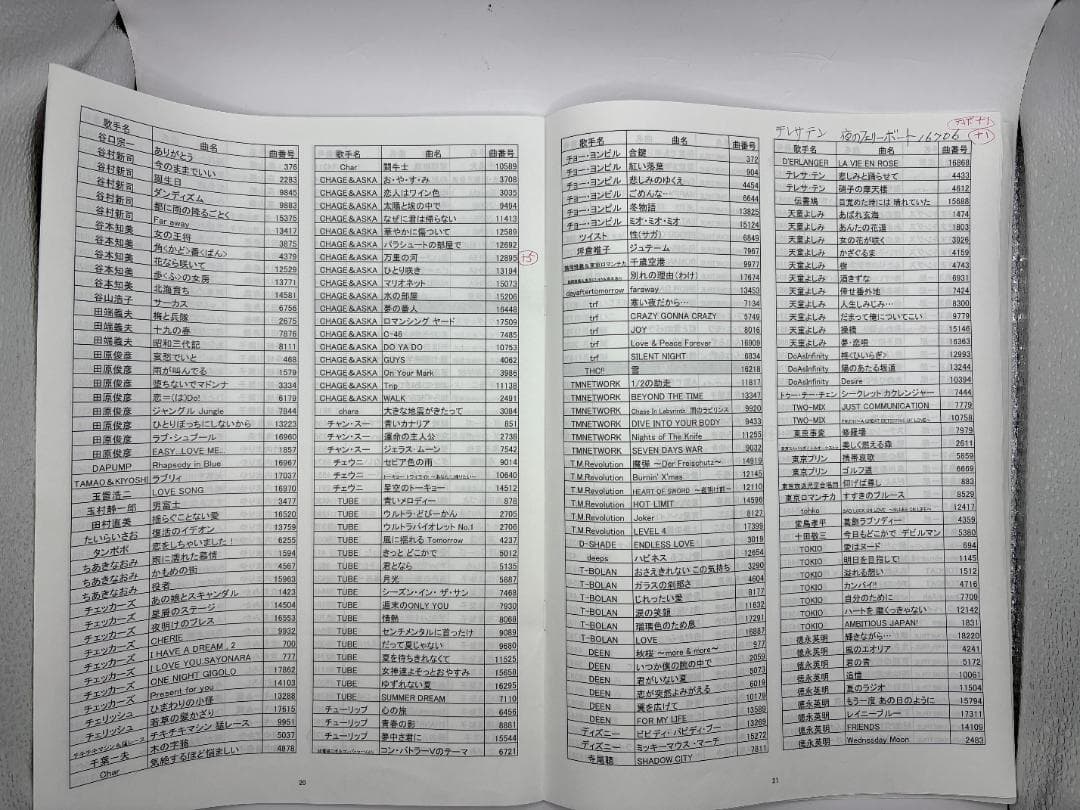 歌手名 曲名 曲番号
谷口宗一 ありがとう 376
谷村新司 今のままでいい 2283
谷村新司 誕生日 9845
谷村新司 ダンディズム 9883
谷村新司 都に雨の降るごとく 15375
谷村新司 Far away 13417
谷本知美 女の王将 3875
谷本知美 角<かど>番<ばん> 4379
谷本知美 花なら咲いて 12529
谷本知美 歩<ふ>の女房 13771
谷本知美 北海育ち 14581
谷山浩子 サーカス 6756
田端義夫 梅と兵隊 2675
田端義夫 十九の春 7876
田端義夫 昭和三代記 8111
田原俊彦 哀愁でいと 468
田原俊彦 雨が叫んでる 1579
田原俊彦 堕ちないでマドンナ 3334
田原俊彦 恋=(は)Do! 6179
田原俊彦 ジャングル Jungle 7844
田原俊彦 ひとりぼっちにしないから 13223
田原俊彦 ラブ・シュプール 16960
田原俊彦 EASY..LOVE ME.. 1857
DAPUMP Rhapsody in Blue 16967
TAMAO&KIYOSHI ラブリィ 17037
玉置浩二 LOVE SONG 16970
玉村静一郎 男富士 3477
田村直美 揺らぐことない愛 16520
たいらいさお 復活のイデオン 13759
タンポポ 恋をしちゃいました! 6255
ちあきなおみ 雨に濡れた慕情 1594
ちあきなおみ かもめの街 4567
ちあきなおみ 役者 15963
チェッカーズ あの娘とスキャンダル 1423
チェッカーズ 星屑のステージ 14504
チェッカーズ 夜明けのブレス 16553
チェッカーズ CHERIE 9932
チェッカーズ I HAVE A DREAM , 2 700
チェッカーズ I LOVE YOU,SAYONARA 777
チェッカーズ ONE NIGHT GIGOLO 17862
チェッカーズ Present for you 14103
チェリッシュ ひまわりの小径 13288
チェリッシュ 若草の髪かざり 17615
チキチキマシン 猛レース 9951
千葉一夫 5037
Char 気絶するほど悩ましい 4878
歌手名 曲名 曲番号
Char 闘牛士 10589
CHAGE&ASKA お・や・す・み 3708
CHAGE&ASKA 恋人はワイン色 3035
CHAGE&ASKA 太陽と埃の中で 9494
CHAGE&ASKA なぜに君は帰らない 11413
CHAGE&ASKA 華やかに傷ついて 12589
CHAGE&ASKA パラシュートの部屋で 12692
CHAGE&ASKA 万里の河 12895
CHAGE&ASKA ひとり咲き 13194
CHAGE&ASKA マリオネット 15073
CHAGE&ASKA 水の部屋 15206
CHAGE&ASKA 夢の番人 16448
CHAGE&ASKA ロマンシング ヤード 17509
CHAGE&ASKA C-46 7485
CHAGE&ASKA DO YA DO 10753
CHAGE&ASKA GUYS 4062
CHAGE&ASKA On Your Mark 3985
CHAGE&ASKA Trip 11138
CHAGE&ASKA WALK 2491
chara 大きな地震がきたって 3084
チャン・スー 青いカナリア 851
チャン・スー 運命の主人公 2738
チャン・スー ジェラス・ムーン 7542
チェウニ セピア色の雨 9014
チェウニ 10640
チェウニ 星空のトーキョー 14512
TUBE 青いメロディー 878
TUBE ウルトラ・どびーかん 2705
TUBE ウルトラバイオレット No.1 2706
TUBE 風に揺れる Tomorrow 4237
TUBE きっと どこかで 5012
TUBE 君となら 5135
TUBE 月光 5887
TUBE シーズン・イン・ザ・サン 7468
TUBE 週末のONLY YOU 7930
TUBE 情熱 8069
TUBE センチメンタルに首ったけ 9089
TUBE だって夏じゃない 9680
TUBE 夏を待ちきれなくて 11525
TUBE 女神達よそっとおやすみ 15650
TUBE ゆずれない夏 16295
TUBE SUMMER DREAM 7110
チューリップ 心の旅 6456
チューリップ 青春の影 8881
チューリップ 夢中さ君に 15544
コン・バトラーVのテーマ 6721
20
歌手名 曲名 曲番号
チョー・ヨンピル 合鍵 372
チョー・ヨンピル 紅い落葉 904
チョー・ヨンピル 悲しみのゆくえ 4454
チョー・ヨンピル ごめんな… 6644
チョー・ヨンピル 冬物語 13825
チョー・ヨンピル ミオ・ミオ・ミオ 15124
ツイスト 性(サガ) 6849
坪倉唯子 ジュテーム 7967
千歳空港 9977
別れの理由(わけ) 17674
dayaftertomorrow faraway 13453
trf 寒い夜だから… 7134
trf CRAZY GONNA CRAZY 5749
trf JOY 8016
trf Love & Peace Forever 16909
trf SILENT NIGHT 6834
THC!! 雪 16218
TMNETWORK 1/2の助走 11817
TMNETWORK BEYOND THE TIME 13347
TMNETWORK Chase In Labyrinth 闇のラビリンス 9920
TMNETWORK DIVE INTO YOUR BODY 9433
TMNETWORK Nights of The Knife 11255
TMNETWORK SEVEN DAYS WAR 9032
T.M.Revolution 魔弾 ~Der Freischutz~ 14919
T.M.Revolution Burnin' X'mas 12145
T.M.Revolution HEART OF SWORD ~夜明け前~ 12110
T.M.Revolution HOT LIMIT 14596
T.M.Revolution Joker 8127
T.M.Revolution LEVEL 4 17399
D-SHADE ENDLESS LOVE 3019
deeps ハピネス 12654
T-BOLAN おさえきれない この気持ち 3290
T-BOLAN ガラスの刹那さ 4604
T-BOLAN じれったい愛 8177
T-BOLAN 涙の笑顔 11632
T-BOLAN 瑠璃色のため息 17291
T-BOLAN LOVE 16887
DEEN 秋桜 ~more & more~ 977
DEEN いつか僕の腕の中で 2059
DEEN 君がいない夏 5073
DEEN 恋が突然よみがえる 6019
DEEN 翼を広げて 10179
DEEN FOR MY LIFE 13589
ディズニー ビビディ・バビディ・ブー 13269
ディズニー ミッキーマウス・マーチ 15272
寺尾聰 SHADOW CITY 7811
テレサテン 夜のフェリーボート 16706
+1
歌手名 曲名 曲番号
D'ERLANGER LA VIE EN ROSE 16868
テレサ・テン 悲しみと踊らせて 4433
テレサ・テン 硝子の摩天楼 4612
伝書鳩 目覚めた時には 晴れていた 15688
天童よしみ あばれ玄海 1474
天童よしみ あんたの花道 1803
天童よしみ 女の花が咲く 3926
天童よしみ かざぐるま 4159
天童よしみ 樹 4743
天童よしみ 酒きずな 6931
天童よしみ 倖せ番外地 7424
天童よしみ 人生しみじみ… 8300
天童よしみ だまって俺についてこい 9779
天童よしみ 操橋 15146
天童よしみ 夢・恋唄 16363
DoAsInfinity 柊<ひいらぎ> 12993
DoAsInfinity 陽のあたる坂道 13244
DoAsInfinity Desire 10394
トゥー・チー・チェン シークレット カクレンジャー 7444
TWO-MIX JUST COMMUNICATION 7779
TWO-MIX 10758
東京事変 修羅場 7979
美しく燃える森 2611
東京プリン 携帯哀歌 5859
東京プリン ゴルフ道 6669
仰げば尊し 883
東京ロマンチカ すすきのブルース 8529
tohko 12417
堂島孝平 葛飾ラプソディー 4359
十田敬三 今日もどこかで デビルマン 5380
TOKIO 愛はヌード 694
TOKIO 明日を目指して! 1145
TOKIO 溢れる想い 1512
TOKIO カンパイ!! 4716
TOKIO 自分のために 7709
TOKIO ハートを 磨くっきゃない 12142
TOKIO AMBITIOUS JAPAN! 1831
徳永英明 輝きながら… 18220
徳永英明 風のエオリア 4241
徳永英明 君の青 5172
徳永英明 追憶 10061
徳永英明 夏のラジオ 11504
徳永英明 もう一度 あの日のように 15794
徳永英明 レイニーブルー 17311
徳永英明 FRIENDS 14109
徳永英明 Wednesday Moon 2483
21